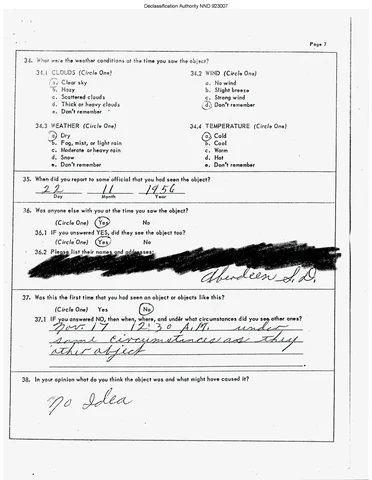 Declassification Authority NND 923007
Page 7
34. What were the weather conditions at the time you saw the object?
34.1 CLOUDS (Circle One) 34.2 WIND (Circle One)
a. Clear sky a. No wind
b. Hazy b. Slight breeze
c. Scattered clouds c. Strong wind
d. Thick or heavy clouds d. Don't remember
e. Don't remember
34.3 WEATHER (Circle One) 34.4 TEMPERATURE (Circle One)
a. Dry a. Cold
b. Fog, mist, or light rain b. Cool
c. Moderate or heavy rain c. Warm
d. Snow d. Hot
e. Don't remember e. Don't remember
35. When did you report to some official that you had seen the object?
22 11 1956
Day Month Year
36. Was anyone else with you at the time you saw the object?
(Circle One) Yes No
36.1 IF you answered YES, did they see the object too?
(Circle One) Yes No
36.2 Please list their names and addresses:
Aberdeen S.D.
37. Was this the first time that you had seen an object or objects like this?
(Circle One) Yes No
37.1 IF you answered NO, then when, where, and under what circumstances did you see other ones?
Nov. 17 12:30 A.M. under
same circumstances as they
other object
38. In your opinion what do you think the object was and what might have caused it?
No Idea